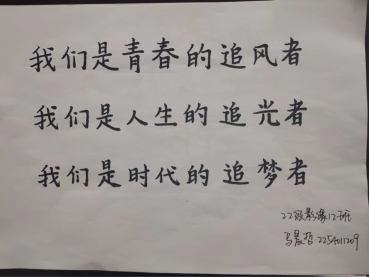 我们是青春的追风者
我们是人生的追光者
我们是时代的追梦者
22级影像12班
马晨哲 2254011209